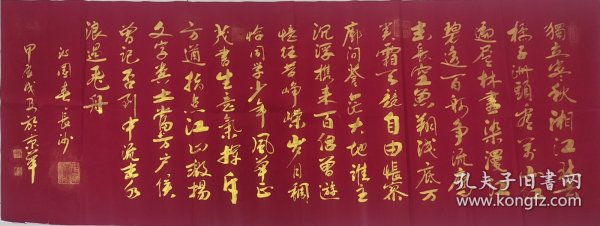 獨立寒秋湘江北去
橘子洲頭看萬山紅
遍层林盡染漫江
碧透百舸争流鹰
击長空魚翔浅底万
類霜天競自由悵寥
廓問蒼茫大地誰主
沉浮携来百侣曾遊
憶往昔峥嵘岁月稠
恰同学少年風華正
茂書生意氣揮斥
方遒指点江山激揚
文字粪土當年万户侯
曾记否到中流击水
浪遏飛舟
沁園春長沙
於京華
孔夫子旧书网
www.kongfz.com